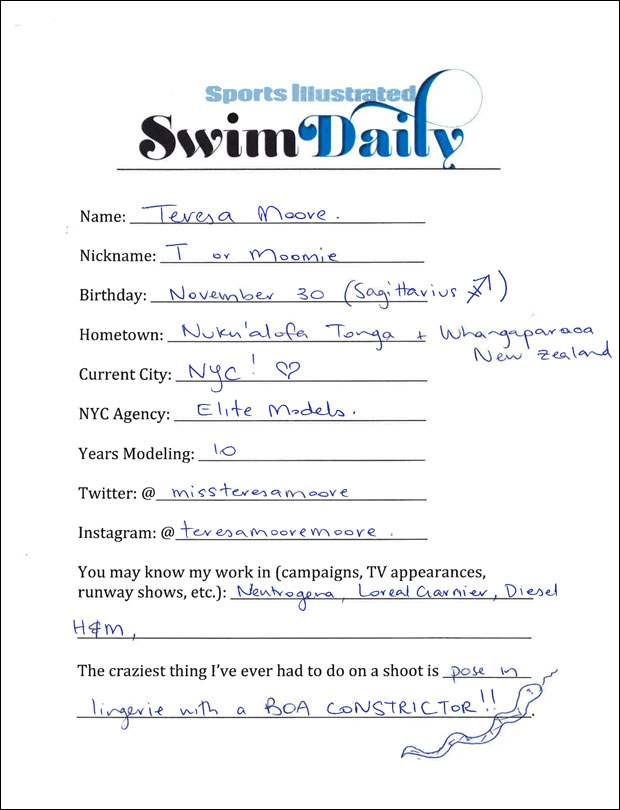 Sports Illustrated
Swim Daily
Name: Teresa Moore.
Nickname: T or Moomie
Birthday: November 30 (Sagittarius ♐)
Hometown: Nuku'alofa Tonga + Whangaparaoa
New Zealand
Current City: NYC! ♡
NYC Agency: Elite Models.
Years Modeling: 10
Twitter: @ missteresamoore
Instagram: @ teresamooremoore.
You may know my work in (campaigns, TV appearances,
runway shows, etc.): Neutrogena, Loreal Garnier, Diesel
H&M,
The craziest thing I've ever had to do on a shoot is pose in
lingerie with a BOA CONSTRICTOR!!.